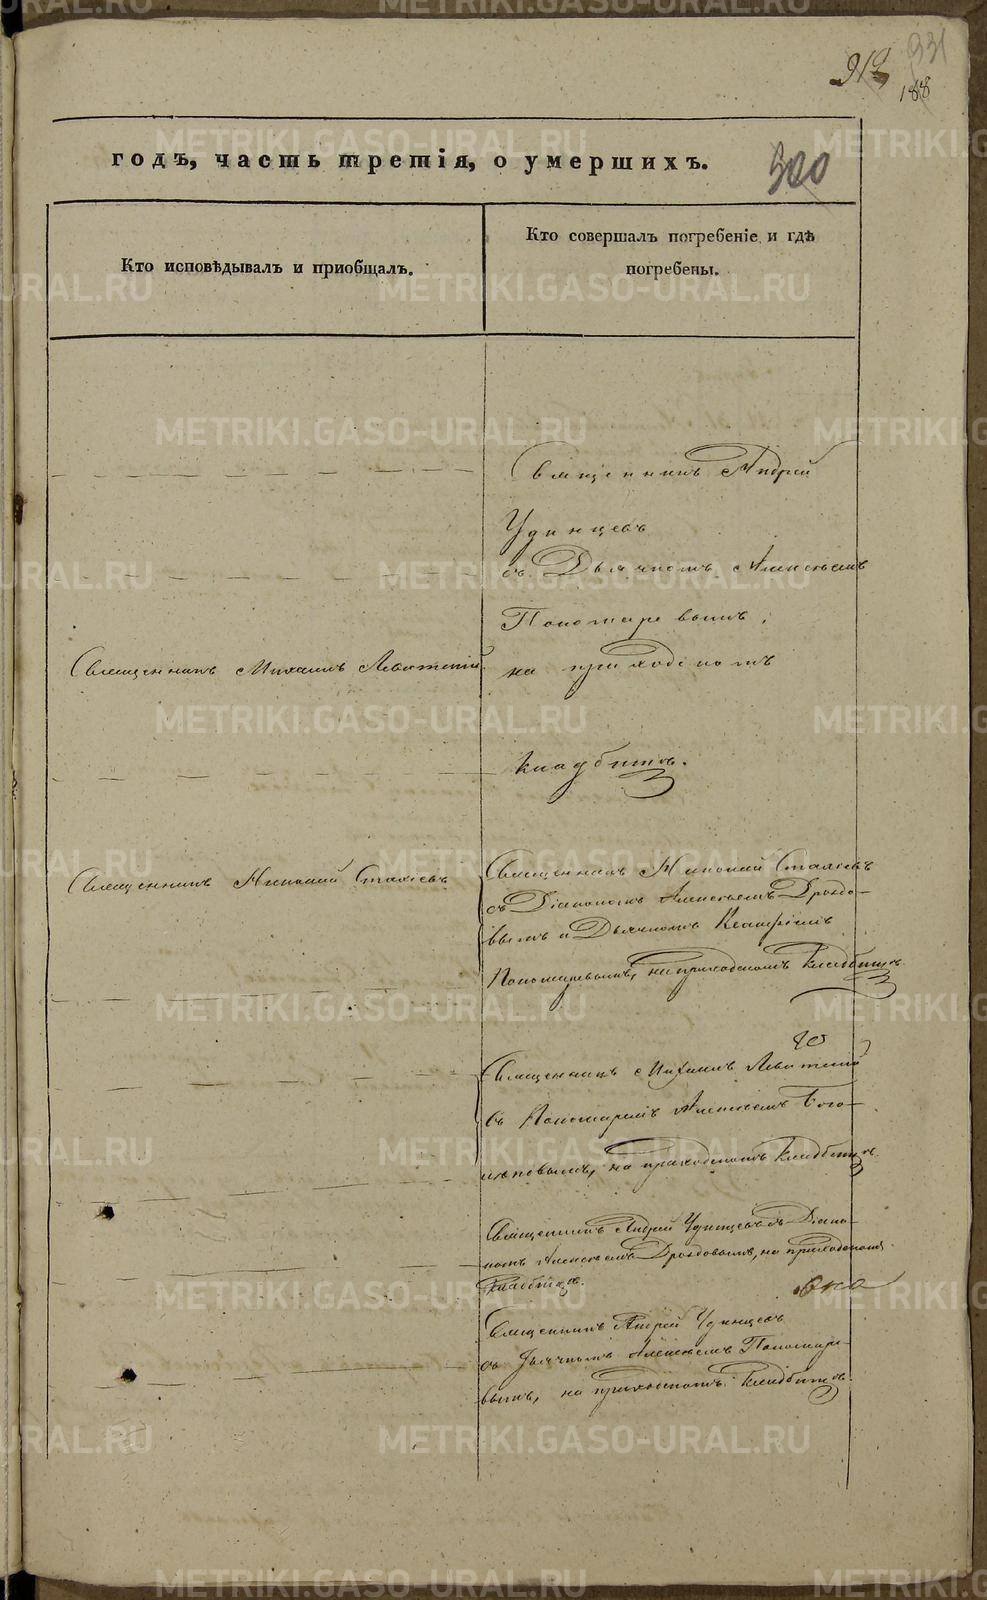 931
188
300
годъ, часть третія, о умершихъ.
Кто исповѣдывалъ и пріобщалъ.
Кто совершалъ погребеніе и гдѣ
погребены.
Священникъ Андрей
Удинцевъ
съ Дьячкомъ Алексѣемъ
Пономаревымъ,
Священникъ Михаилъ Левитскій
на приходскомъ
кладбищѣ.
Священникъ Николай Стахіевъ
Священникъ Николай Стахіевъ
съ Діакономъ Алексѣемъ Дроздо-
вымъ и Дьячкомъ
Пономаревымъ, на приходскомъ кладбищѣ
Священникъ Михаилъ Левитскій
съ Пономаремъ Алексѣемъ Бого-
лѣповымъ, на приходскомъ кладбищѣ.
Священникъ Андрей Удинцевъ съ Діако-
номъ Алексѣемъ Дроздовымъ, на приходскомъ
кладбищѣ.
Священникъ Андрей Удинцевъ
съ Дьячкомъ Алексѣемъ Пономаре-
вымъ, на приходскомъ кладбищѣ.
METRIKI.GASO-URAL.RU